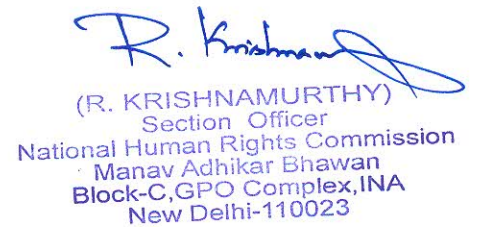 R. Krishnam
(R. KRISHNAMURTHY)
Section Officer
National Human Rights Commission
Manav Adhikar Bhawan
Block-C,GPO Complex,INA
New Delhi-110023